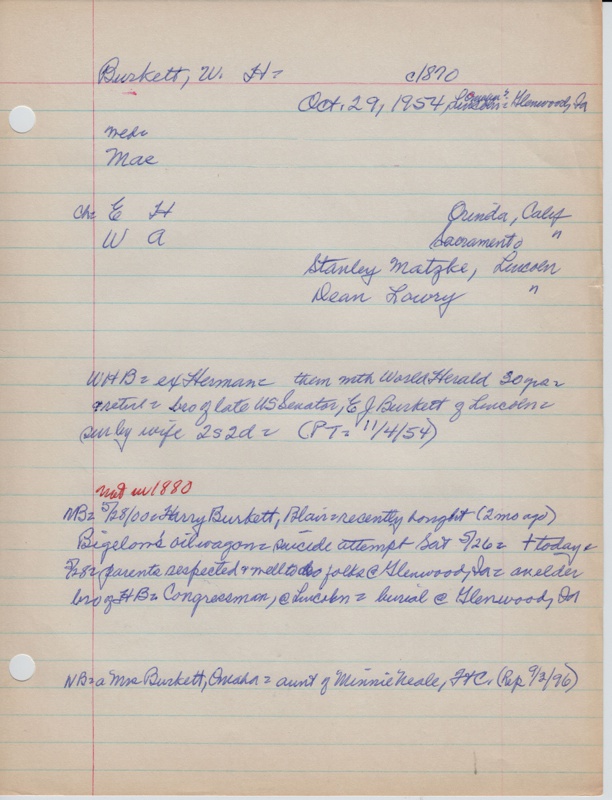 Burkett, W. H= c1870
Oct. 29, 1954, Lincoln= Glenwood, Ia
med=
Mae
Ch= E H Orinda, Calif
W A Sacramento "
Stanley Matzke, Lincoln
Dean Lowry "
WHB= ex Herman= then with World Herald 30 yrs=
retired= bro of late US Senator, E J Burkett of Lincoln=
sur by wife 2s 2d= (PT= 11/4/54)
not in 1880
NB= 5/28/00= Harry Burkett, Blair= recently bought (2 mo ago)
Bigelow's oil wagon= suicide attempt Sat 5/26= + today=
5/28= parents respected & well to do folks @ Glenwood, Ia= an elder
bro of HB= Congressman, @ Lincoln= burial @ Glenwood, Ia
NB= a Mrs Burkett, Omaha= aunt of Minnie Neale, FtC. (Rep 9/2/96)